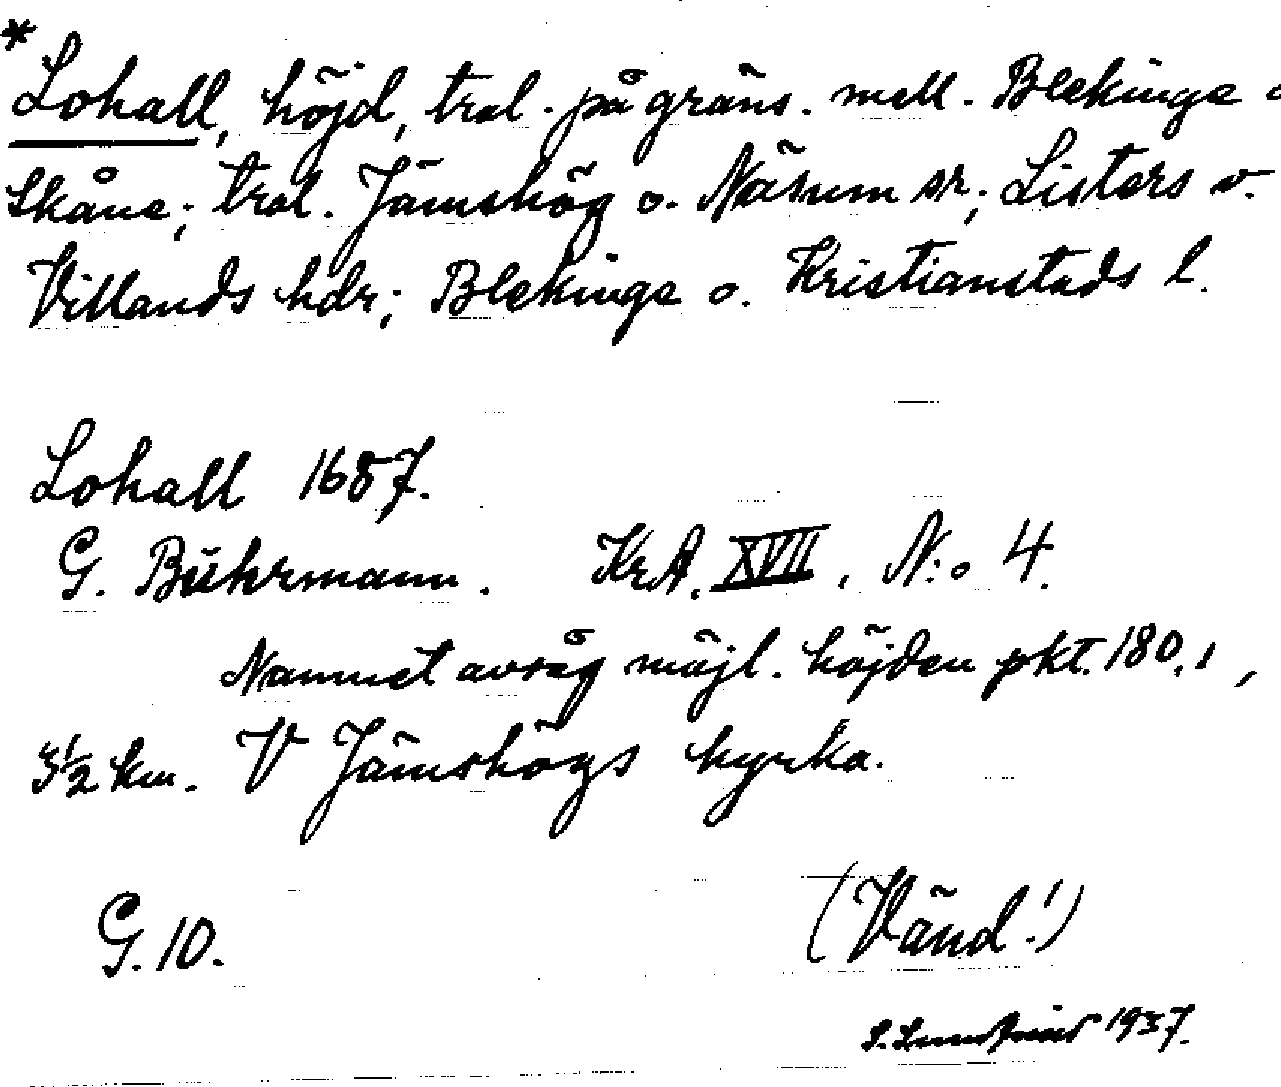 *Lohall, höjd, trol. på gräns. mell. Blekinge o
Skåne; trol. Jämshög o. Näsum sr; Listers o.
Villands hdr; Blekinge o. Kristianstads l.
Lohall 1687.
G. Buhrmann. KrA. XVII, N:o 4.
Namnet avsåg möjl. höjden pkt. 180,1,
3½ km. V Jämshögs kyrka.
G. 10. (Vänd!)
S. 1937.